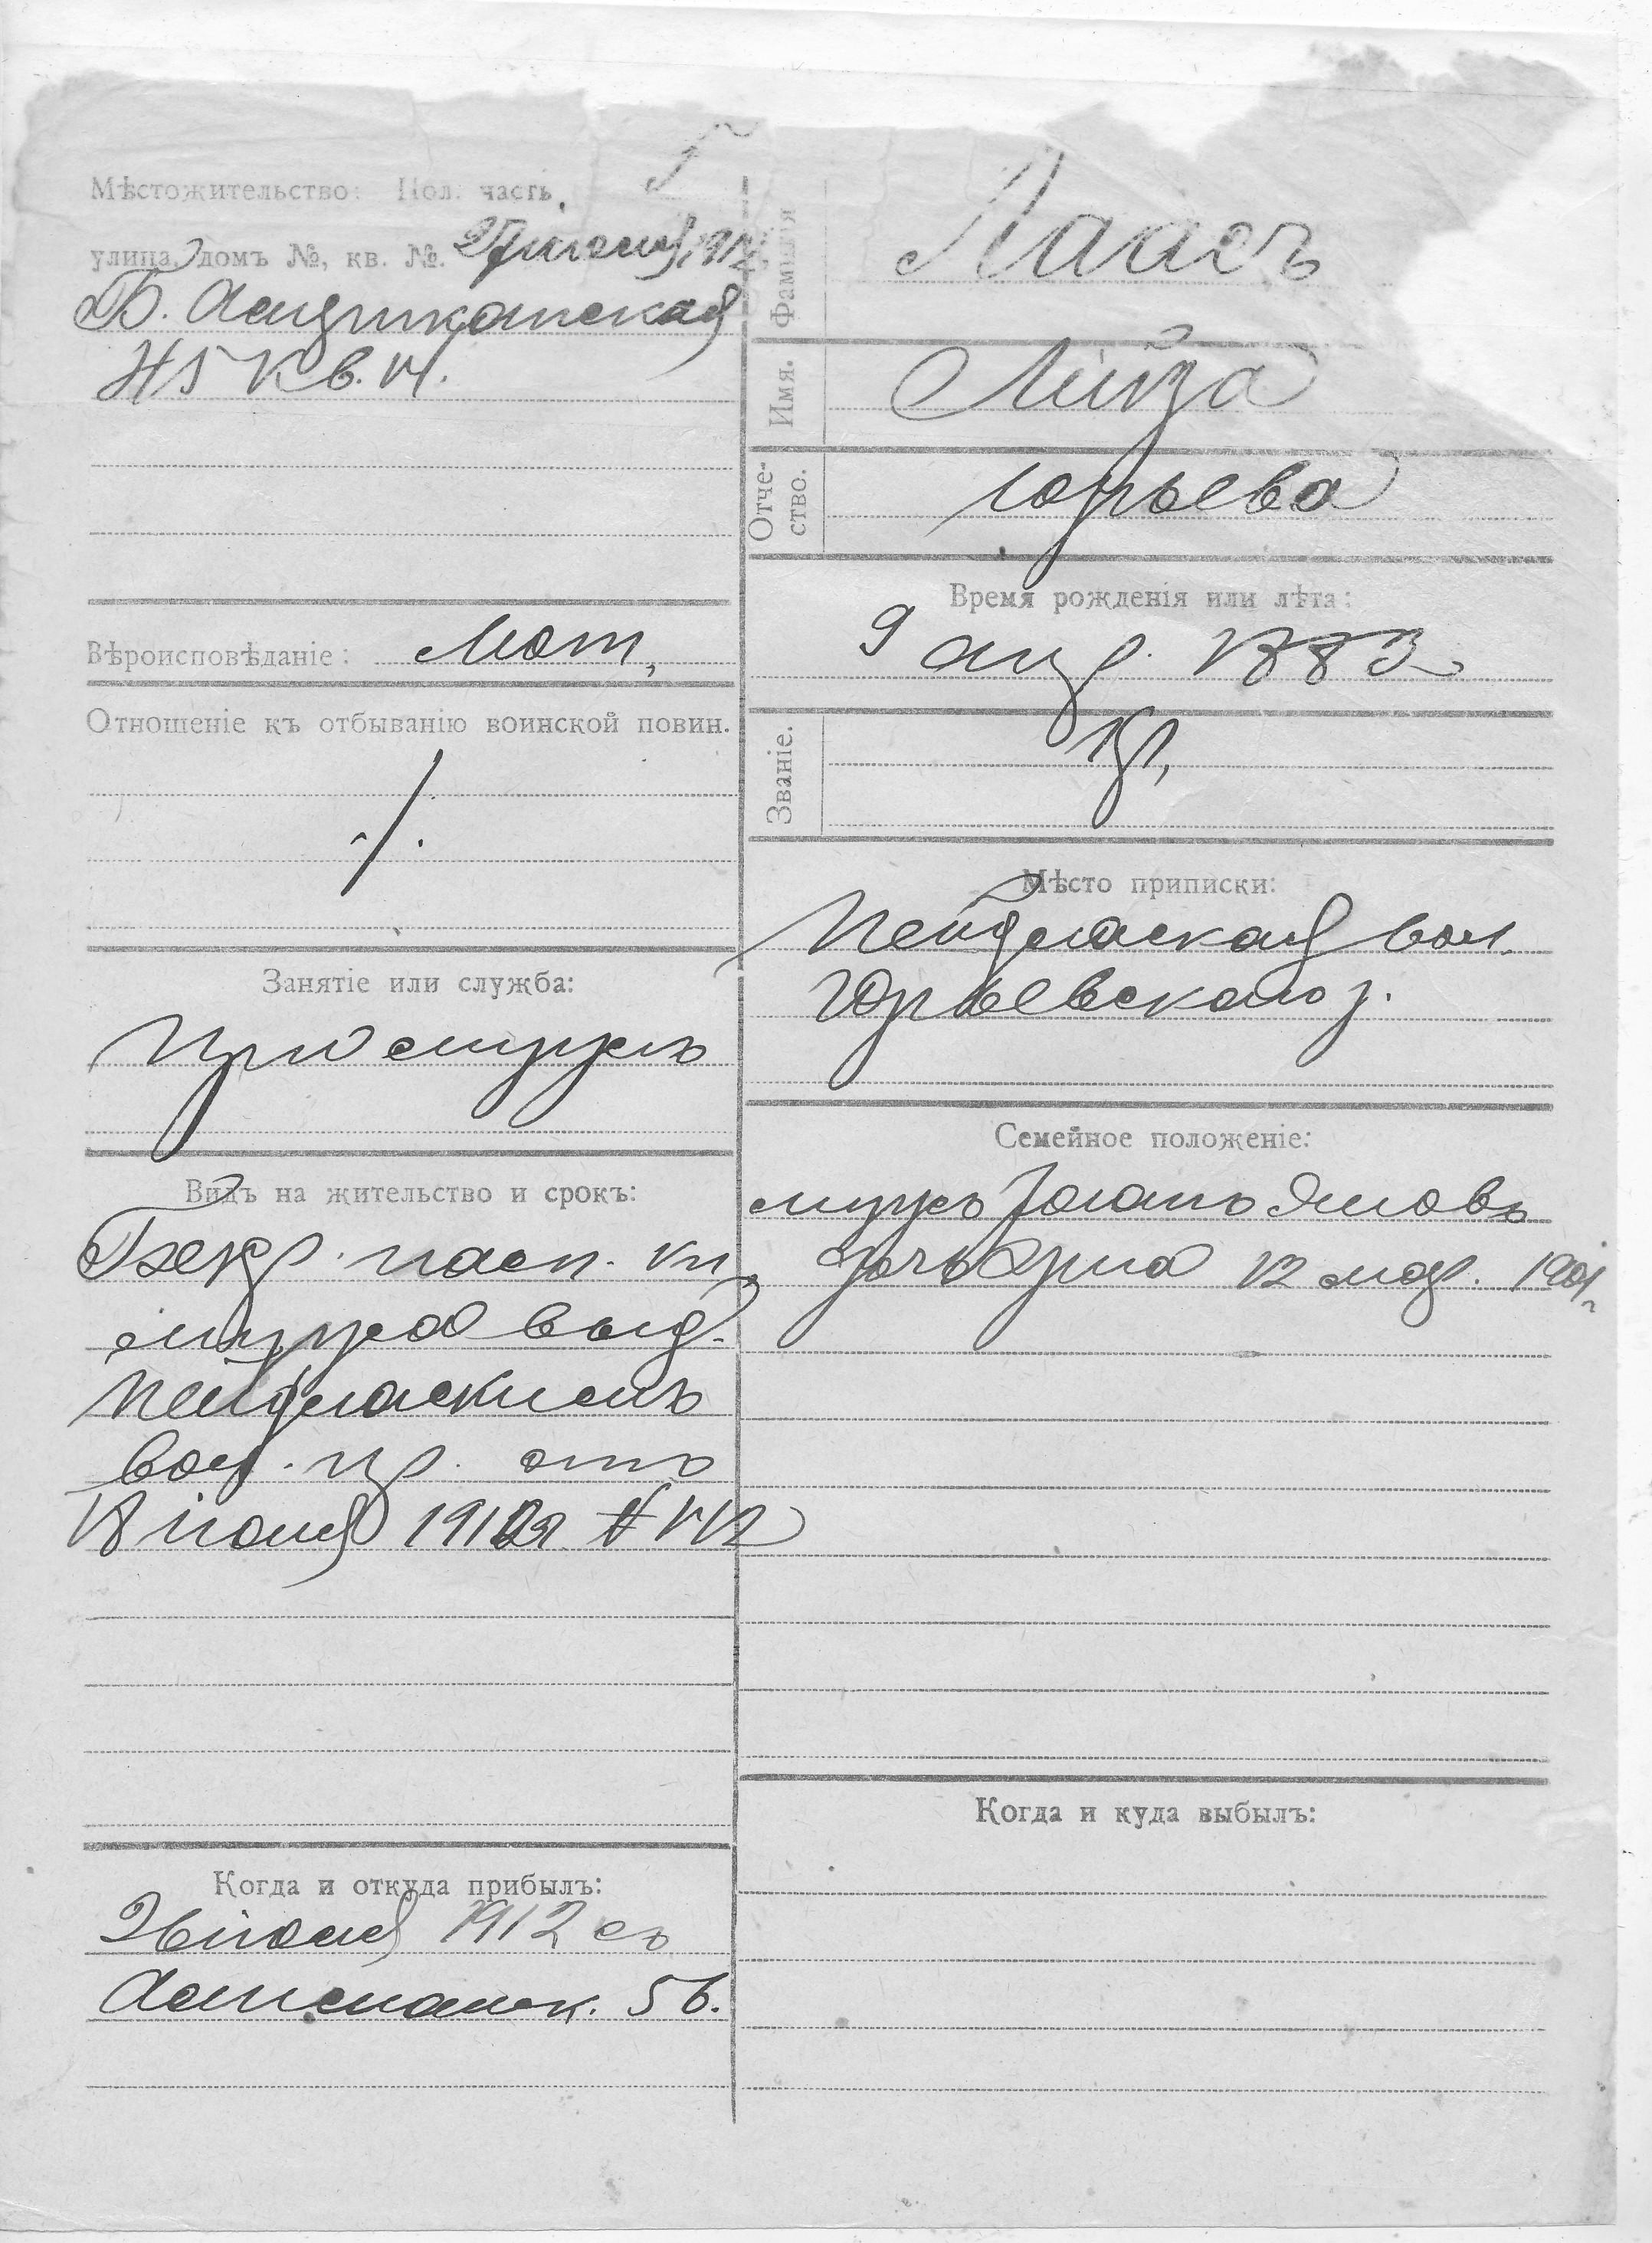 Мѣстожительство: Пол. часть
улица, домъ №, кв. №. 27 июня 1912
Б.
№5 Кв. 14.
Вѣроисповѣданіе: Лют,
Отношеніе къ отбыванію воинской повин.
./.
Занятіе или служба:
При мужѣ
Видъ на жительство и срокъ:
Безср. пасп. кн.
мужа выд.
Пейдласкимъ
вол. пр. отъ
18 июня 1912г. №
Когда и откуда прибылъ:
26 июня 1912 съ
56.
Фамилія
Лаасъ
Имя.
Лийза
Отчество.
Юрьева
Время рожденія или лѣта:
9 апр. 1883
Званіе.
кр,
Мѣсто приписки:
Пейдлаская вол.
Юрьевскаго у.
Семейное положеніе:
мужъ Іоганъ Яновъ
дочь 12 мар. 1901
Когда и куда выбылъ: